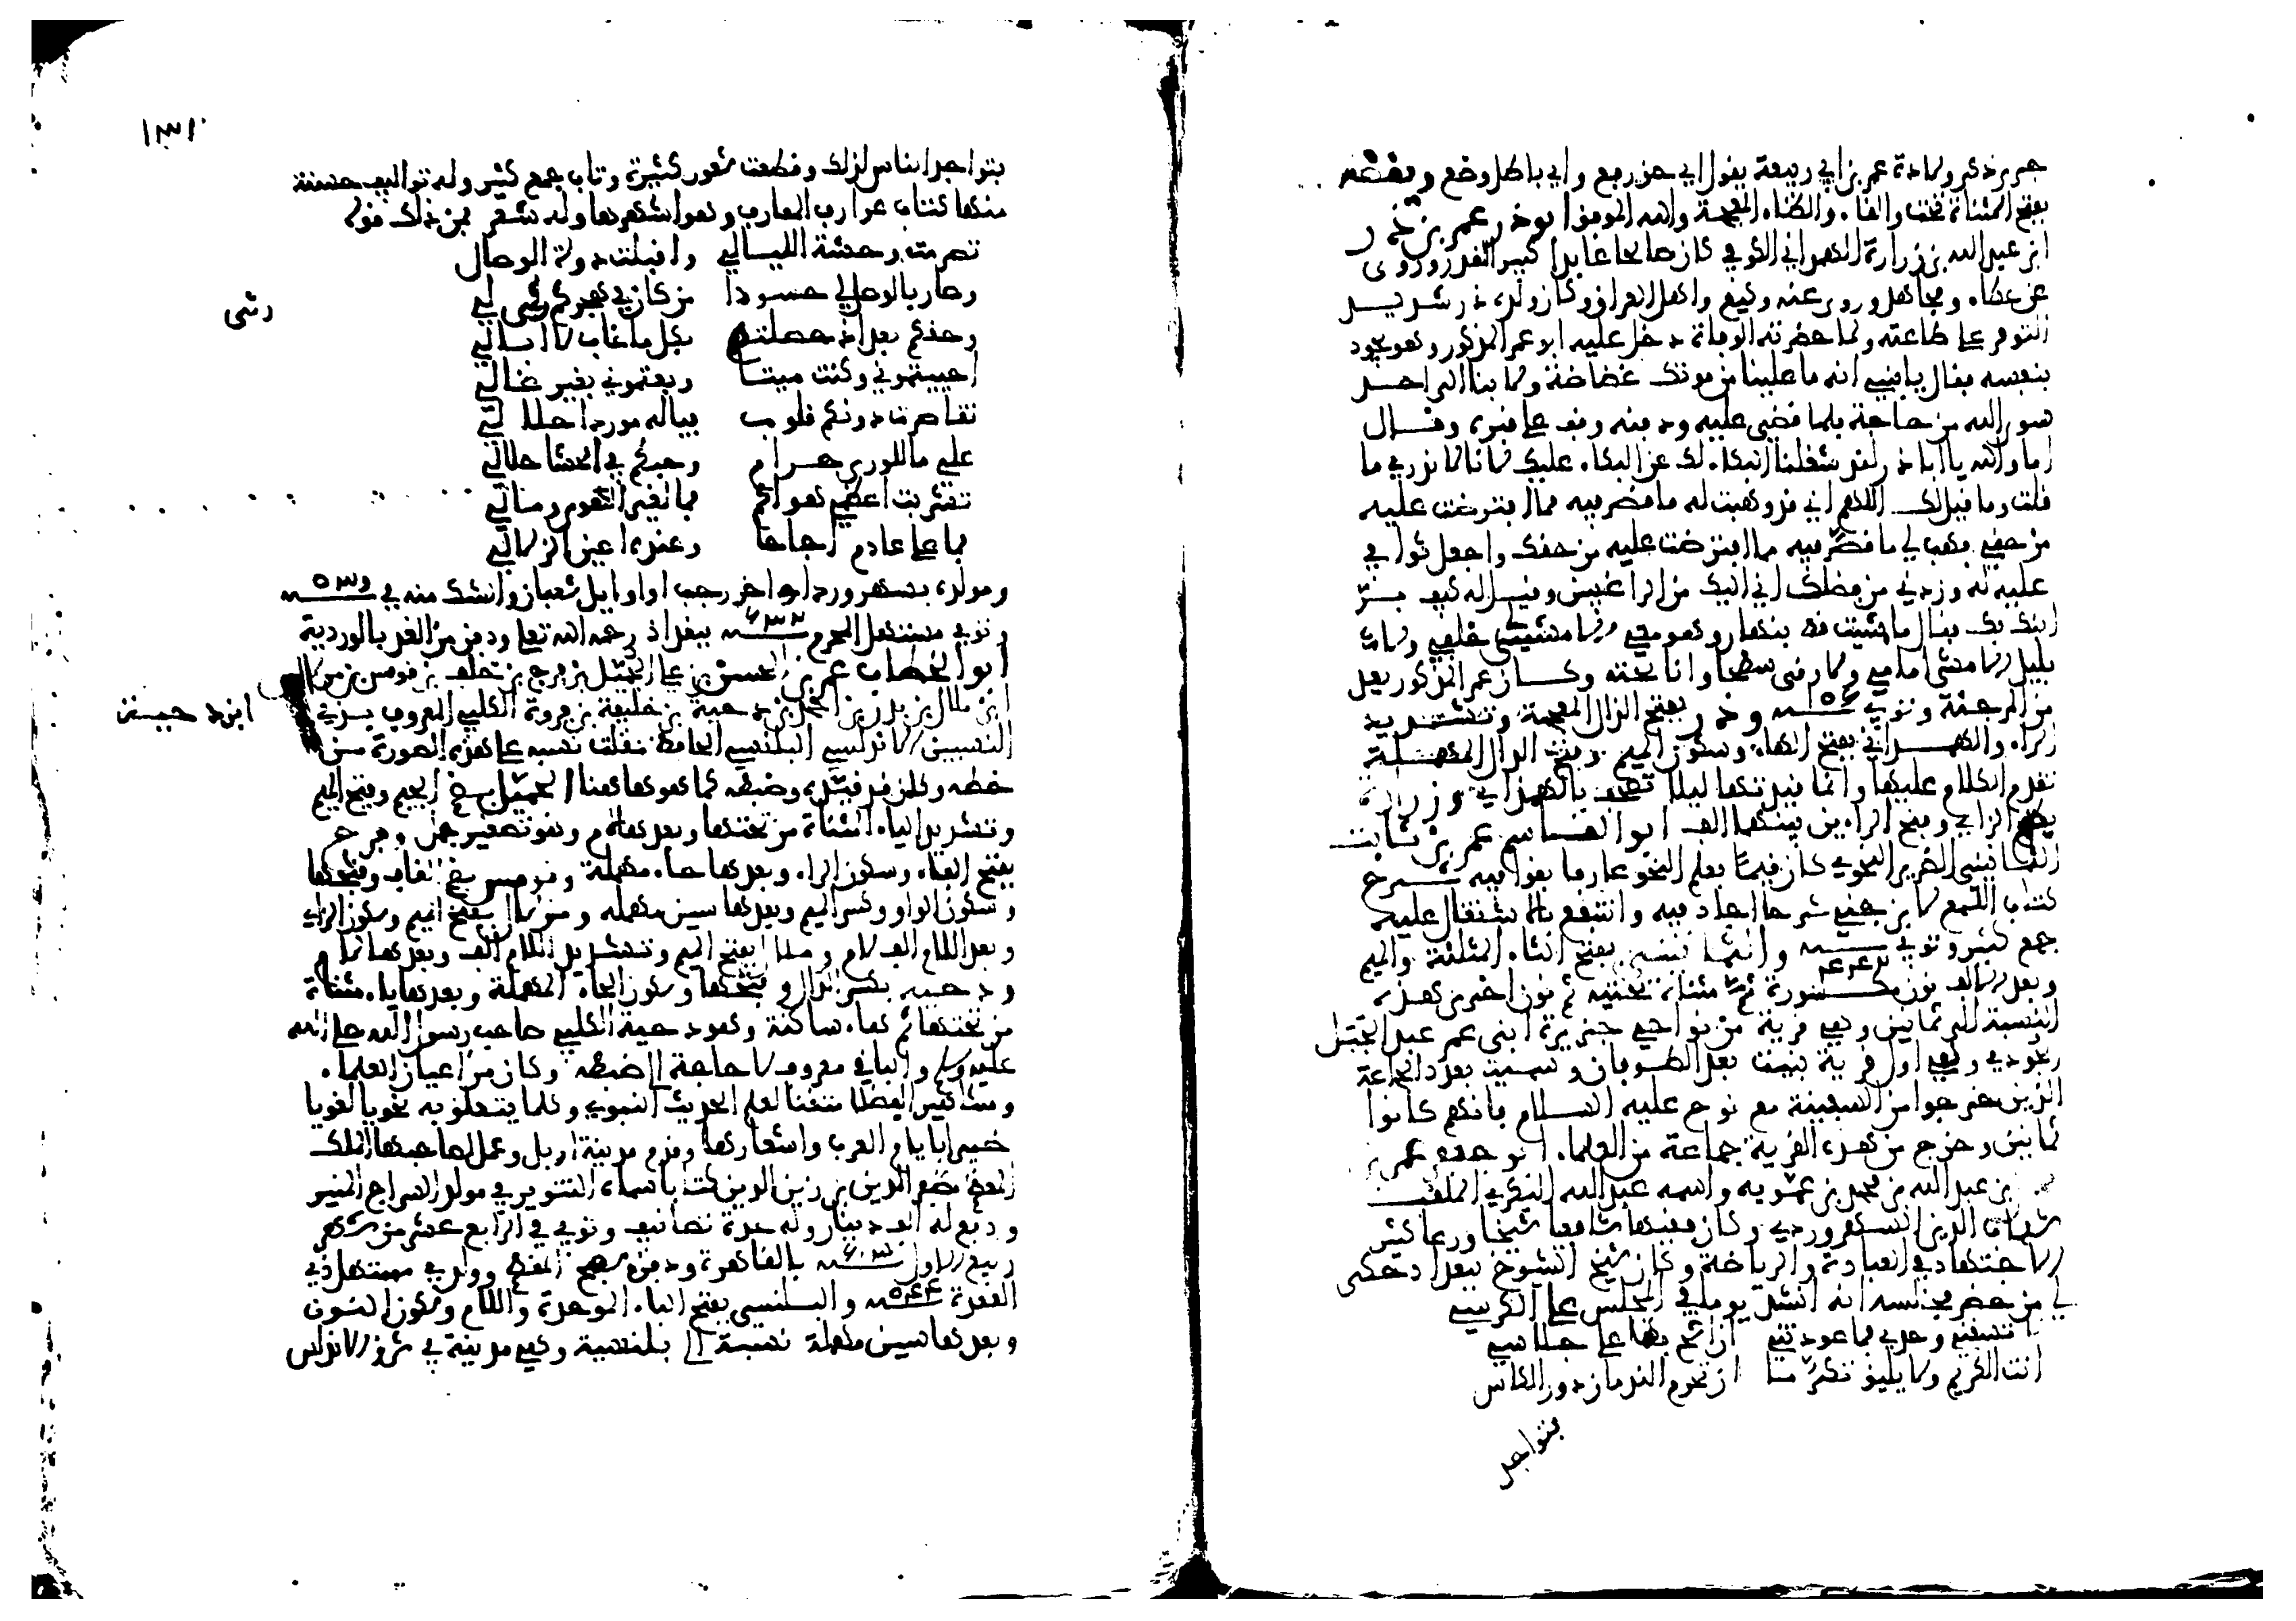 جرير ذكر ولادة عمر بن ابي ربيعة يقول اي حق رفع واي باطل وضع ويقظه
بفتح المثناة تحت والقاف والظاء المعجمة والله الموفق ابو ذر عمر بن ذر
ابن عبد الله بن زرارة الهمداني الكوفي كان صالحا عابدا كبير القدر وروى
عن عطاء ومجاهد وروى عنه وكيع واهل العراق وكان ولده ذر شديد
التوفر على طاعته ولما حضرته الوفاة دخل عليه ابو عمر المذكور وهو يجود
بنفسه فقال يا بني انه ما علينا من موتك غضاضة ولا بنا الى احد
سوى الله من حاجة فلما قضى عليه ودفنه وقف على قبره وقال
اما والله يا ابا ذر لقد شغلنا البكاء لك عن البكاء عليك لانا لا ندري ما
قلت وما قيل لك اللهم اني قد وهبت له ما قصر فيه مما افترضت عليه
من حقي فهب لي ما قصر فيه مما افترضت عليه من حقك واجعل ثوابي
عليه له وزدني من فضلك اني اليك من الراغبين وقيل له كيف بر
ابنك بك فقال ما مشيت قط بنهار وهو معي الا مشى خلفي ولا
بليل الا مشى امامي ولا رقى سطحا وانا تحته وكان عمر المذكور يعد
من المرجئة وتوفي سنة وذر بفتح الذال المعجمة وتشديد
الراء والهمداني بفتح الهاء وسكون الميم وفتح الدال المهملة
تقدم الكلام عليها وانما قيدتها ليلا تصحف بالهمذاني وزرارة
بضم الزاي وفتح الراءين بينهما الف ابو القاسم عمر بن ثابت
الثمانيني الضرير النحوي كان قيما بعلم النحو عارفا بقوانينه شرح
كتاب اللمع لابن جني شرحا اجاد فيه وانتفع بالاشتغال عليه
جمع كثير وتوفي سنة ٤٤٢ والثمانيني بفتح الثاء المثلثة والميم
وبعد الالف نون مكسورة ثم مثناة تحتية ثم نون اخرى هذه
النسبة الى ثمانين وهي قرية من نواحي جزيرة ابني عمر عند الجبل
الجودي وهي اول قرية بنيت بعد الطوفان وسميت بعدد الجماعة
الذين خرجوا من السفينة مع نوح عليه السلام فانهم كانوا
ثمانين وخرج من هذه القرية جماعة من العلماء ابو حفص عمر بن
بن عبد الله بن محمد بن عمويه واسمه عبد الله البكري الملقب
شهاب الدين السهروردي وكان فقيها شافعيا شيخا ورعا كثير
الاجتهاد في العبادة والرياضة وكان شيخ الشيوخ ببغداد حكى
لي من حضر مجلسه انه انشد يوما في المجلس على الكرسي
لا تسقني وحدي فما عودتني اني اشح بها على جلاسي
انت الكريم ولا يليق تكرما ان تحرم الندمان دور الكاس
بتواجد
١٣١
بتواجد الناس لذلك وقطعت شعور كثيرة وتاب جمع كثير وله تواليف حسنة
منها كتاب عوارف المعارف وهو اشهرها وله شعر فمن ذلك قوله
تصرمت وحشة الليالي واقبلت دولة الوصال
وصار بالوصل لي حسودا من كان في هجركم رثى لي
رثى
وحقكم بعد اذ حصلتم بكل ما فات لا ابالي
احييتموني وكنت ميتا وبعتموني بغير غالي
تقاصرت دونكم قلوب فياله موردا حلا لي
علي ما للورى حرام وحبكم في الحشا حلالي
تشربت اعظمي هواكم فما لغير الهوى ومالي
فما على عادم اجاجا وعنده اعين الزلالي
ومولده بسهرورد اواخر رجب او اوايل شعبان والشك منه في سنة ٥٣٩
وتوفي مستهل المحرم سنة ٦٣٢ ببغداد رحمه الله تعالى ودفن من الغد بالوردية
ابو الخطاب عمر بن الحسن بن علي الجميل بن فرج بن خلف بن قومس بن مزلال
ابن ملال بن بدر بن احمد بن دحية بن خليفة بن فروة الكلبي المعروف بذي
ابن دحية
النسبين الاندلسي البلنسي الحافظ نقلت نسبه على هذه الصورة من
خطه وكان قد قيده وضبطه كما هو هاهنا الجميل بضم الجيم وفتح الميم
وتشديد الياء المثناة من تحتها وبعدها لام وهو تصغير جمل وفرح
بفتح الفاء وسكون الراء وبعدها حاء مهملة وقومس بضم القاف وفتحها
وسكون الواو وكسر الميم وبعدها سين مهملة ومزلال بفتح الميم وسكون الزاي
وبعد اللام الف لام وملال بفتح الميم وتشديد اللام الف وبعدها لام
ودحية بكسر الدال وفتحها وسكون الحاء المهملة وبعدها ياء مثناة
من تحتها ثم هاء ساكنة وهو دحية الكلبي صاحب رسول الله صلى الله
عليه وسلم والباقي معروف لا حاجة الى ضبطه وكان من اعيان العلماء
ومشاهير الفضلا متقنا لعلم الحديث النبوي وكلما يتعلق به نحويا لغويا
خبيرا بايام العرب واشعارها وقدم مدينة اربل وعمل لصاحبها الملك
المعظم مظفر الدين بن زين الدين كتابا سماه التنوير في مولد السراج المنير
ودفع له الف دينار وله عدة تصانيف وتوفي في الرابع عشر من شهر
ربيع الاول سنة بالقاهرة ودفن بسفح المقطم وولد في مستهل ذي
القعدة سنة ٥٤٤ والبلنسي بفتح الباء الموحدة واللام وسكون النون
وبعدها سين مهملة نسبة الى بلنسية وهي مدينة في شرق الاندلس